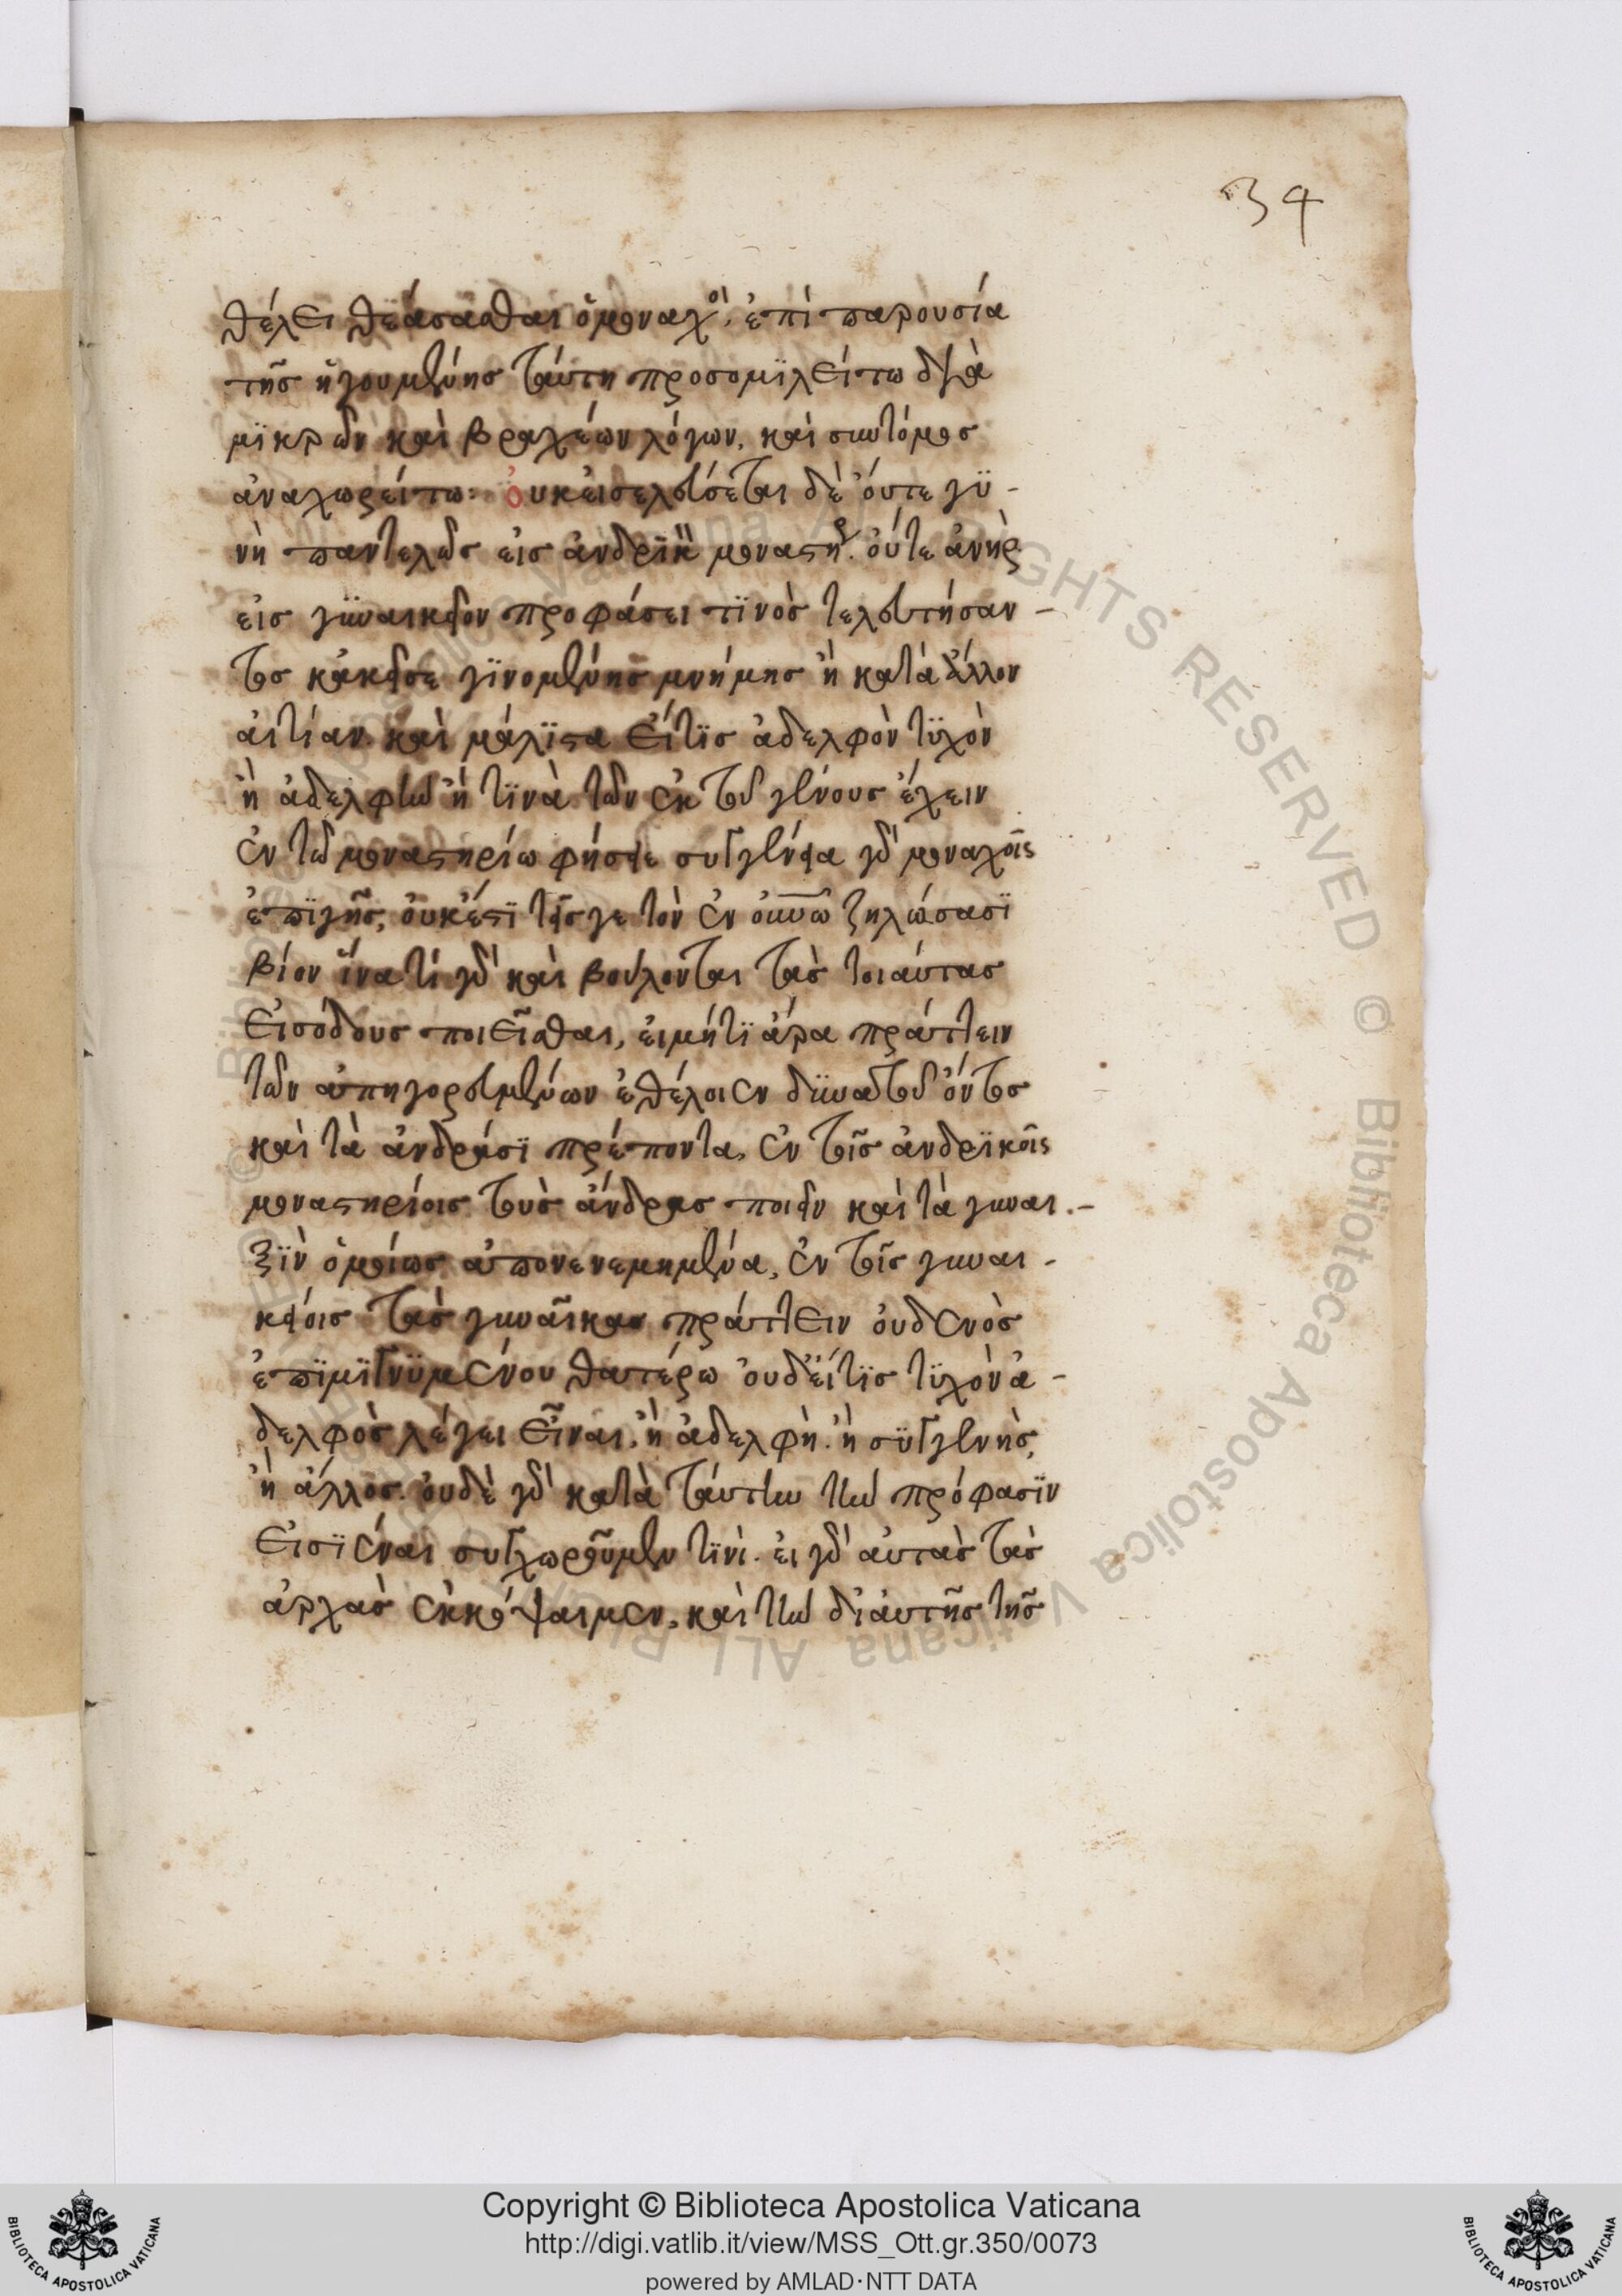 34
θέλει θεάσασθαι ὁ μοναχὸ, ἐπὶ παρουσία
τῆς ἡγουμένης ταύτη προσομϊλείτω διὰ
μϊκρῶν καὶ βραχέων λόγων, καὶ συντόμως
ἀναχωρείτω: ὀυκ ἐισελεύσεται δὲ ὄυτε γϋ-
νὴ παντελῶς εἰς ἀνδρϊκ μοναστηρ. ὀύτε ἀνὴρ
εἰς γϋναικεῖον προφάσει τϊνὸς τελευτήσαν-
τος κἀκεῖσε γϊνομένης μνήμης ἢ κατὰ ἄλλον
ἀιτίαν. καὶ μάλϊστα εἴ τϊς ἀδελφὸν τϋχὸν
ἢ ἀδελφὴν ἢ τϊνὰ τῶν ἐκ τοῦ γένους ἔχειν
ἐν τῶ μοναστηρίω φήσειε συγγένεια γὰρ μοναχοῖς
ἐπϊ γῆς, ὀυκ ἔστϊ τοῖς γε τὸν ἐν ὀυνω ζηλώσασϊ
βίον ἵνα τί γὰρ καὶ βούλονται τὰς τοιάυτας
εἰσόδους ποιεῖσθαι, ἐι μήτϊ ἄρα πράττειν
τῶν ἀπηγορευμένων ἐθέλοιεν δϋνατοῦ ὄντος
καὶ τὰ ἀνδράσϊ πρέποντα, ἐν τοῖς ἀνδρϊκοῖς
μοναστηρίοις τοὺς ἄνδρας ποιεῖν καὶ τὰ γυναι.-
ξϊν ὁμοίως ἀπονενεμημένα, ἐν τοῖς γυναι-
κείοις τὰς γυναῖκας πράττειν ὀυδενὸς
ἐπϊμϊγνϋμένου θατέρω ὀυδ' ἔι τϊς τϋχὸν ἀ-
δελφὸς λέγει εἶναι, ἢ ἀδελφὴ. ἢ σϋγγενὴς,
ἢ ἄλλος. ὀυδὲ γὰρ κατὰ τάυτην τὴν πρόφασϊν
εἰσϊέναι συγχωροῦμεν τϊνὶ. ἐι γὰρ ἀυτὰς τὰς
ἀρχὰς ἐκκόψαιμεν, καὶ τὴν δι ἀυτῆς τῆς
Copyright © Biblioteca Apostolica Vaticana
http://digi.vatlib.it/view/MSS_Ott.gr.350/0073
powered by AMLAD·NTT DATA
BIBLIOTECA APOSTOLICA VATICANA
BIBLIOTECA APOSTOLICA VATICANA